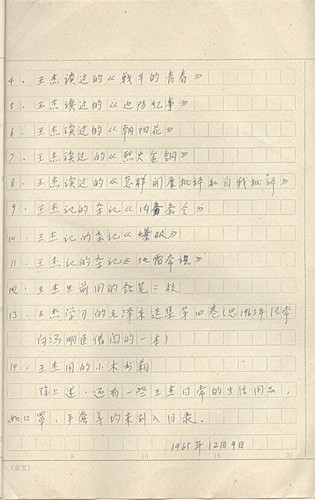 4．王杰读过的《战斗的青春》
5．王杰读过的《边防纪事》
6．王杰读过的《朝阳花》
7．王杰读过的《烈火金钢》
8．王杰读过的《怎样开展批评和自我批评》
9．王杰记的杂记《内务条令》
10．王杰记的杂记《爆破》
11．王杰记的杂记《地雷》
12．王杰生前用的铅笔二枝
13．王杰学习的毛泽东选集第四卷（是1963年
向冯明臣借阅的一本）
14．王杰用的小木书箱
除上述，还有一些王杰日常的生活用品，
如口罩，手套等均未列入目录。
1965年12月9日
5 10 15 20